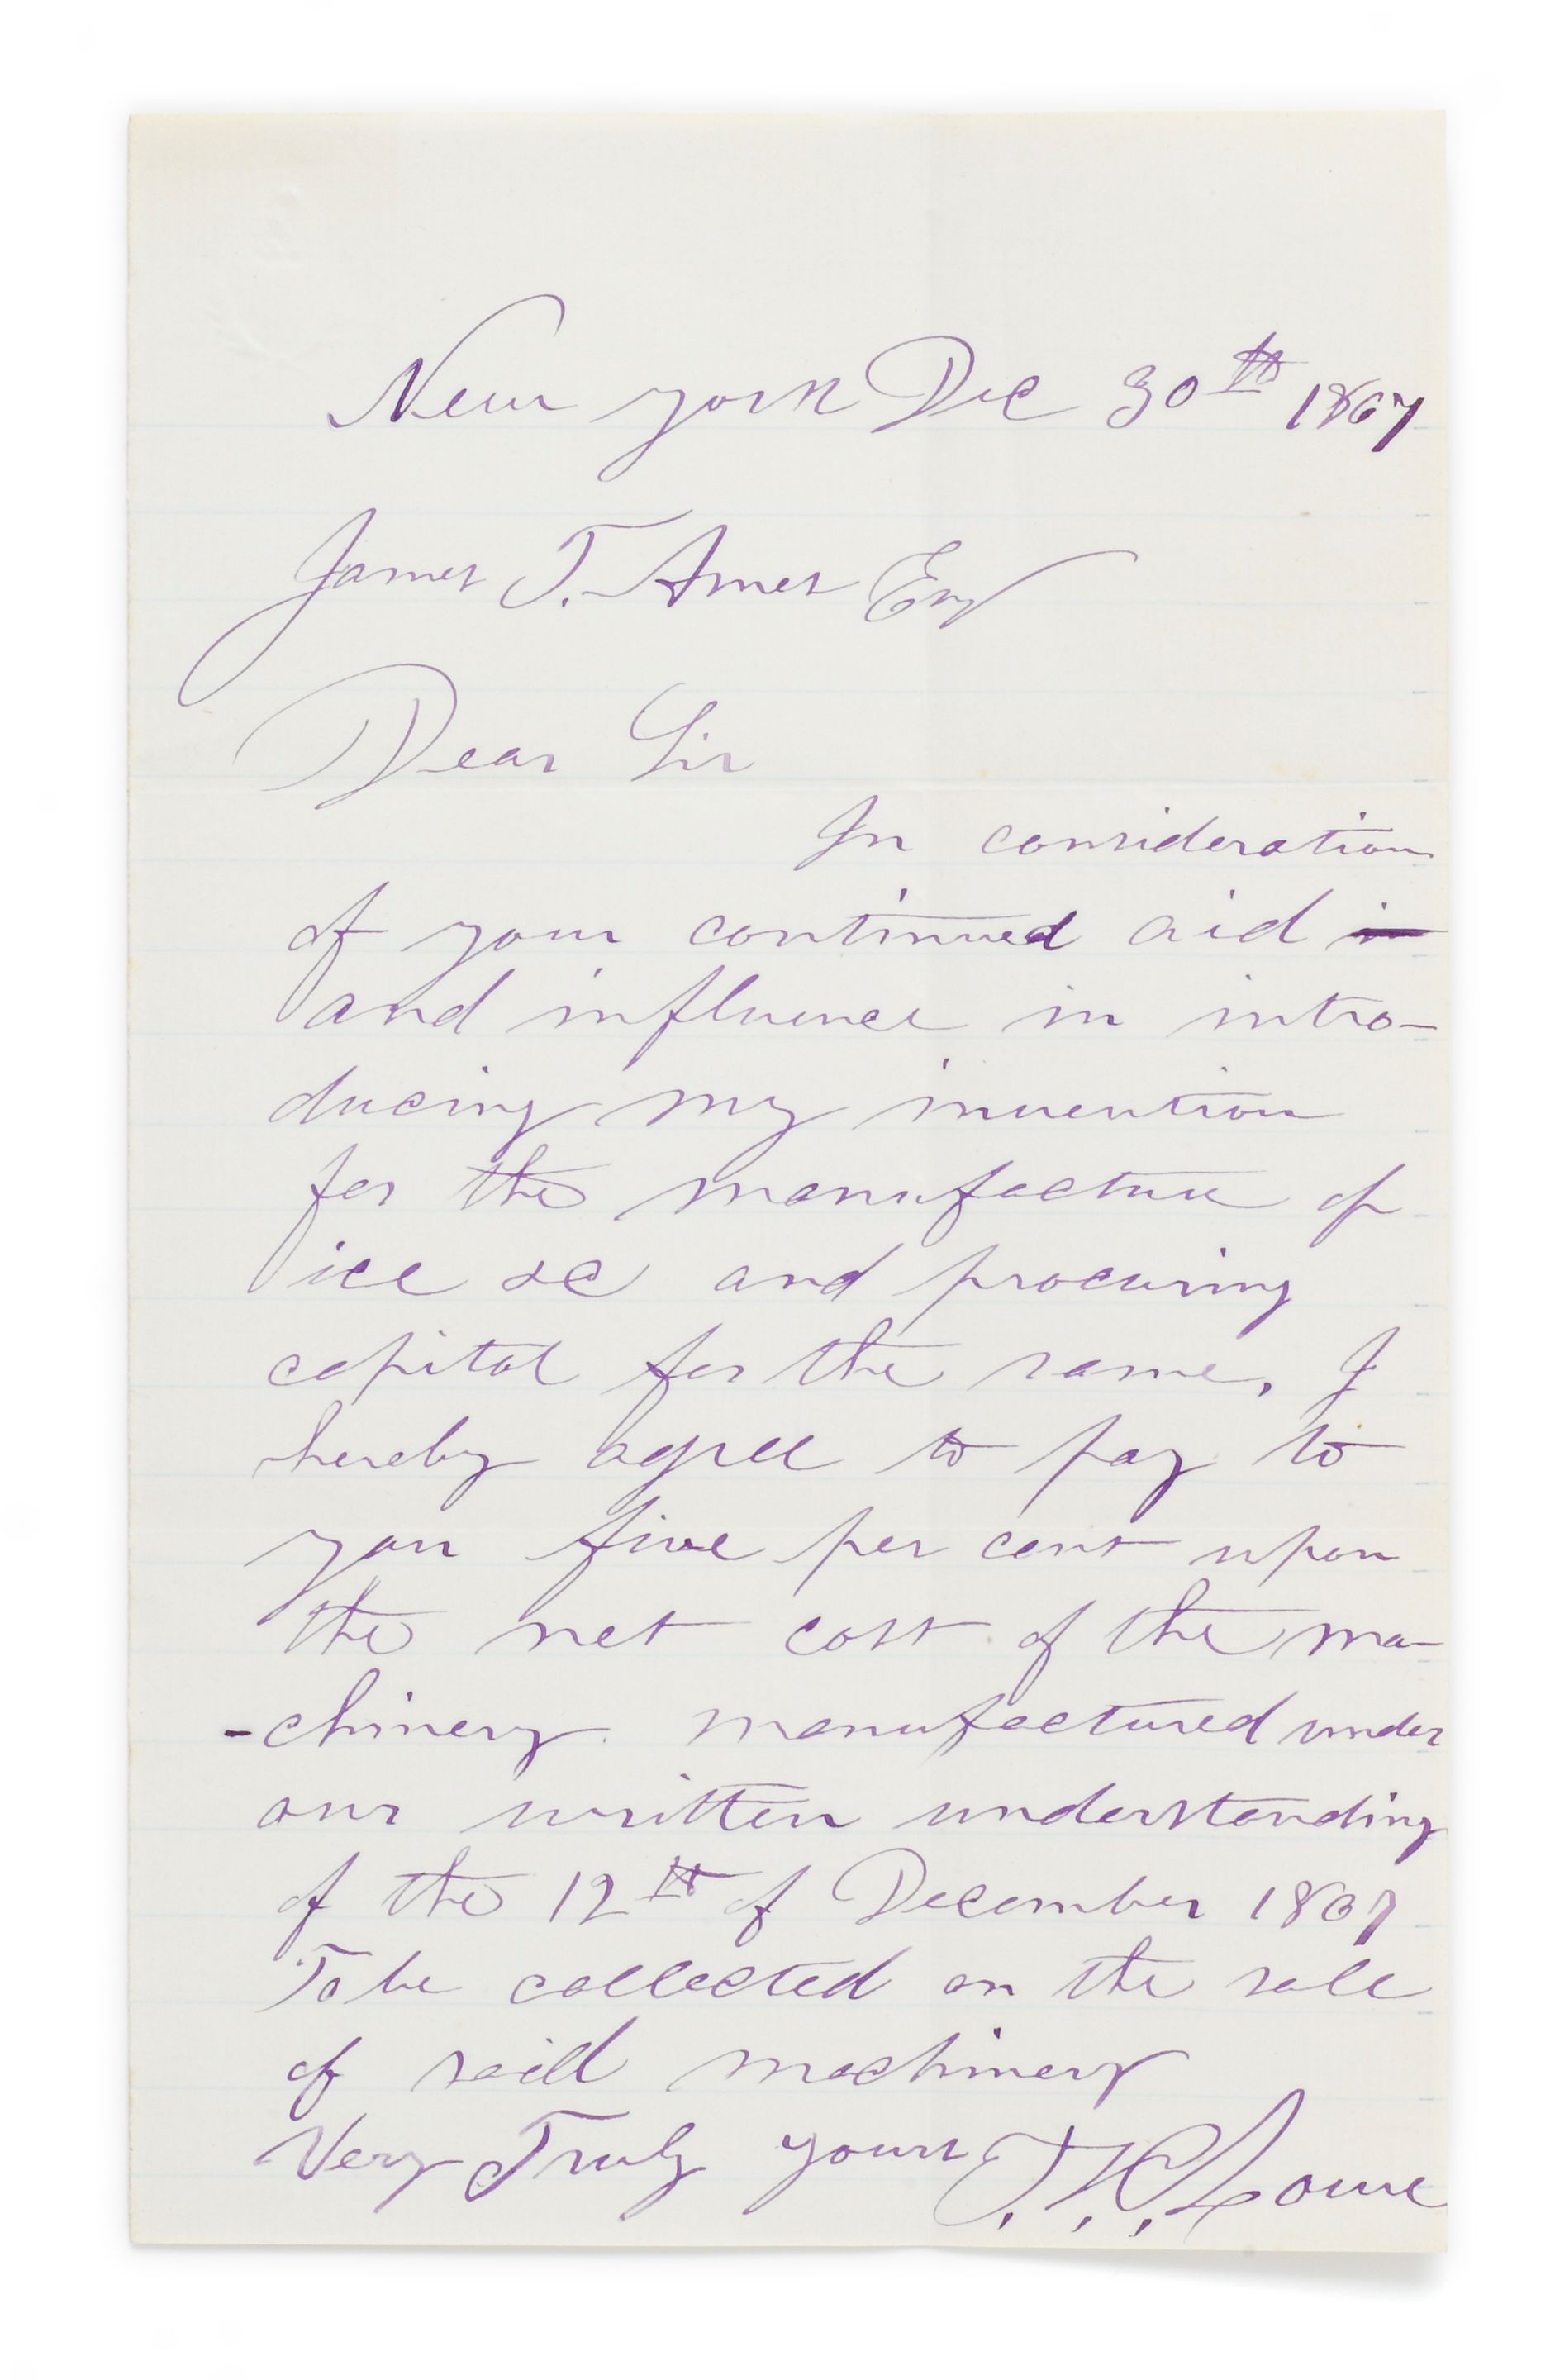 New York Dec 30th 1867
James T. Ames Esq
Dear Sir
In consideration
of your continued aid in
and influence in intro-
ducing my invention
for the manufacture of
ice &c and procuring
capital for the same, I
hereby agree to pay to
you five per cent upon
the net cost of the ma-
-chinery manufactured under
our written understanding
of the 12th of December 1867
To be collected on the sale
of said machinery
Very Truly yours T. S. C. Lowe